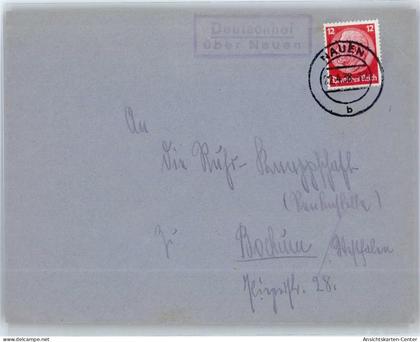 Deutschhof
über Nauen
12 12
NAUEN
Deutsches Reich
b
An
die Ruhr-Knappschaft
zu Bochum / Westfalen
28.
Ansichtskarten-Center